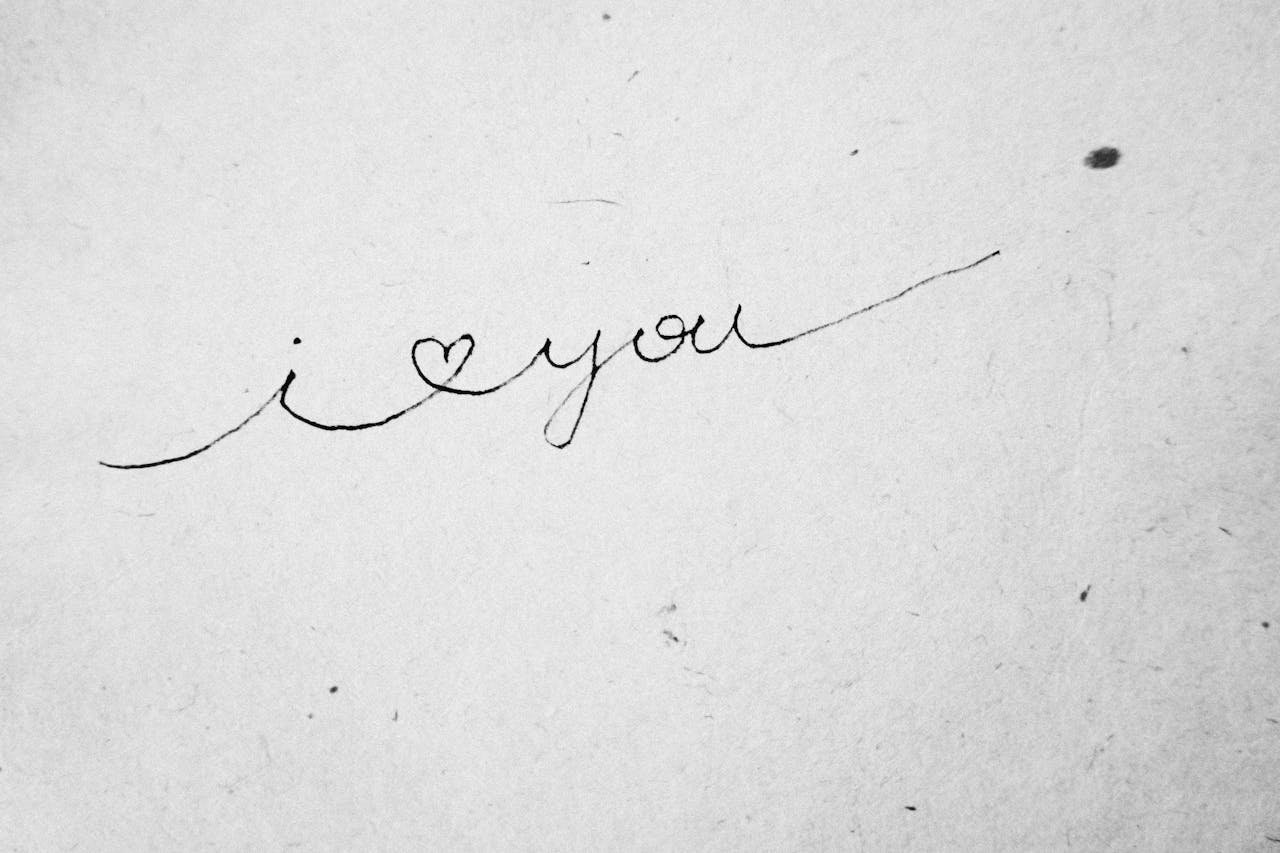 i ♡ you